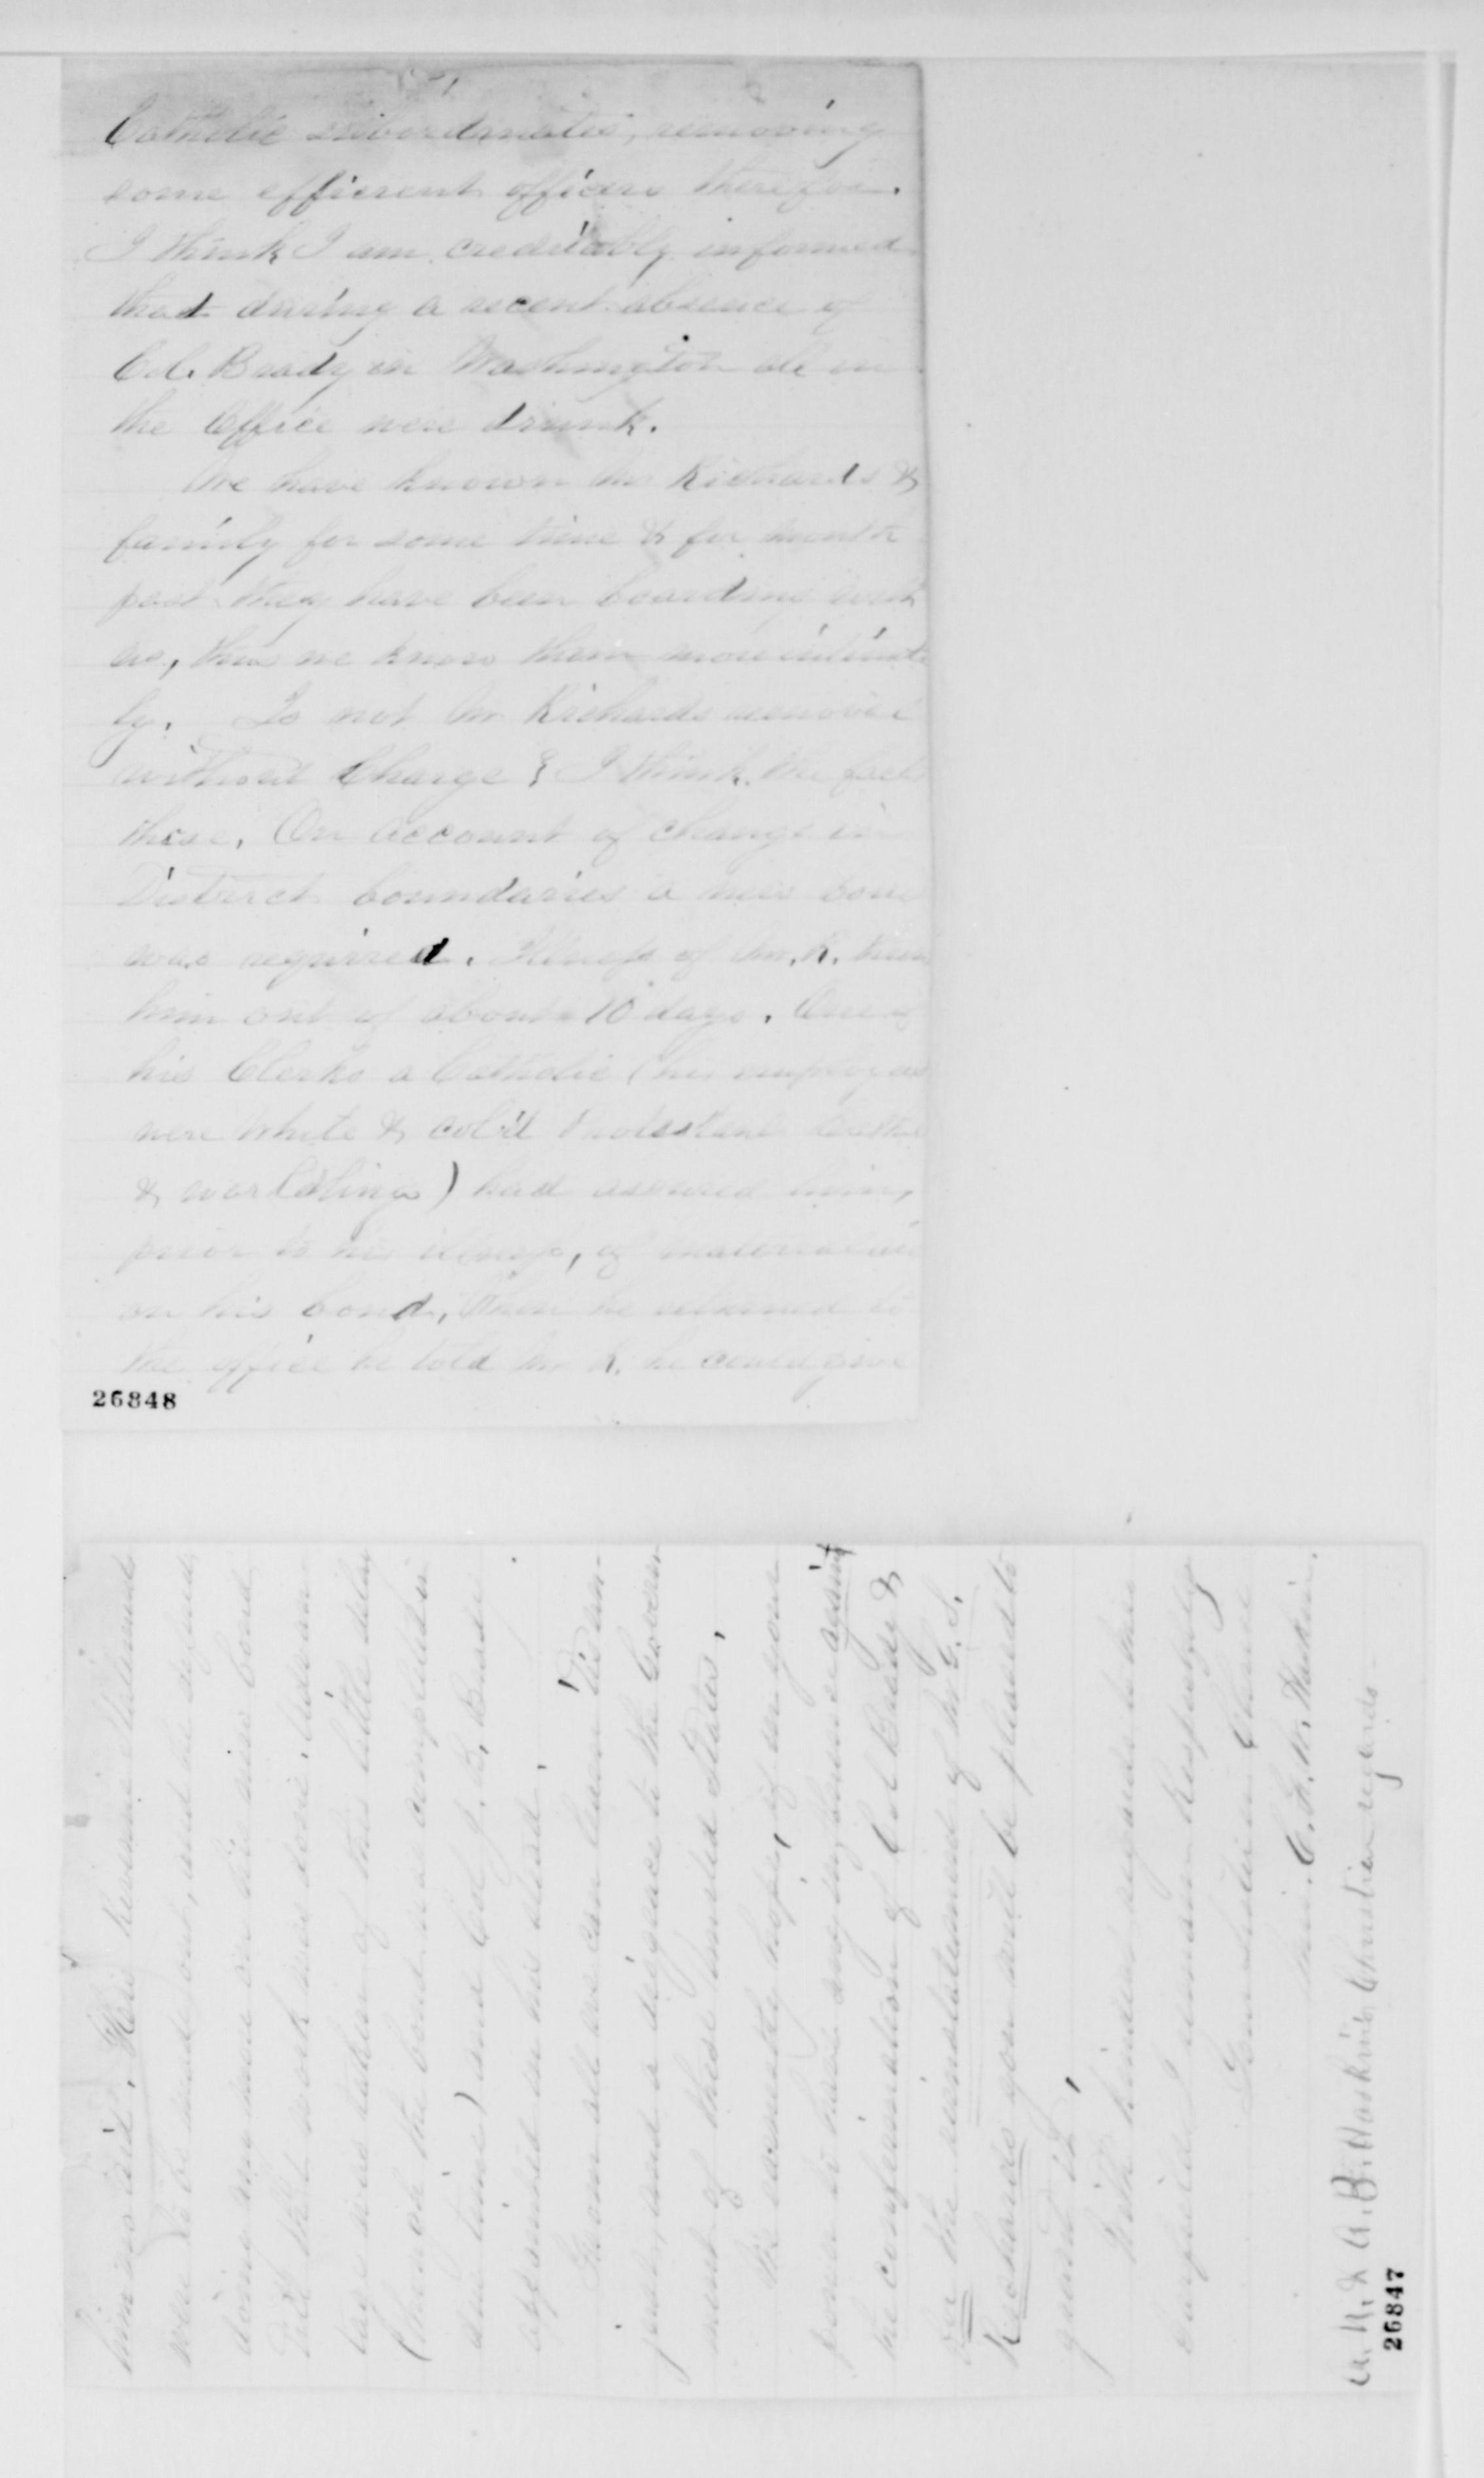 Catholic subordinates, removing
some efficient officers therefor.
I think I am creditably informed
that during a recent absence of
Col. Brady in Washington all in
the Office were drunk.
We have known Mr Richards &
family for some time & for months
past they have been boarding with
us, thus we know them more intimate
ly. Is not Mr Richards removed
without Charge? I think the facts
these. On account of change in
District boundaries a new bond
was required. Illness of Mr. R. kept
him out of about 10 days. One of
his Clerks a Catholic (his employees
were White & col'd Protestant Catholic
& worldlings) had assured him,
prior to his illness, of material aid
on his bond, When he returned to
the office he told Mr R. he could give
26848
him no aid. His Revenue Statements
were to be made out, and he refused
doing any more on the new bond
Till that work was done. Advan-
tage was taken of this little delay
(though the bond was completed in
due time) and Col J. B. Brady
appointed in his stead.
From all we can learn this in-
justice, and a disgrace to the Govern-
ment of these United States.
We earnestly hope, if in your
power to have any influence against
the confirmation of Col Brady &
for the reinstatement of Mr G. S.
Richards you will be pleased to
guard it.
With kindest regards to Mrs
Garfield I remain Respectfully
Your Sister in Christ
Mrs. C. A. W. Haskin.
W. H. & A. B. Haskin's Christian regards
26847